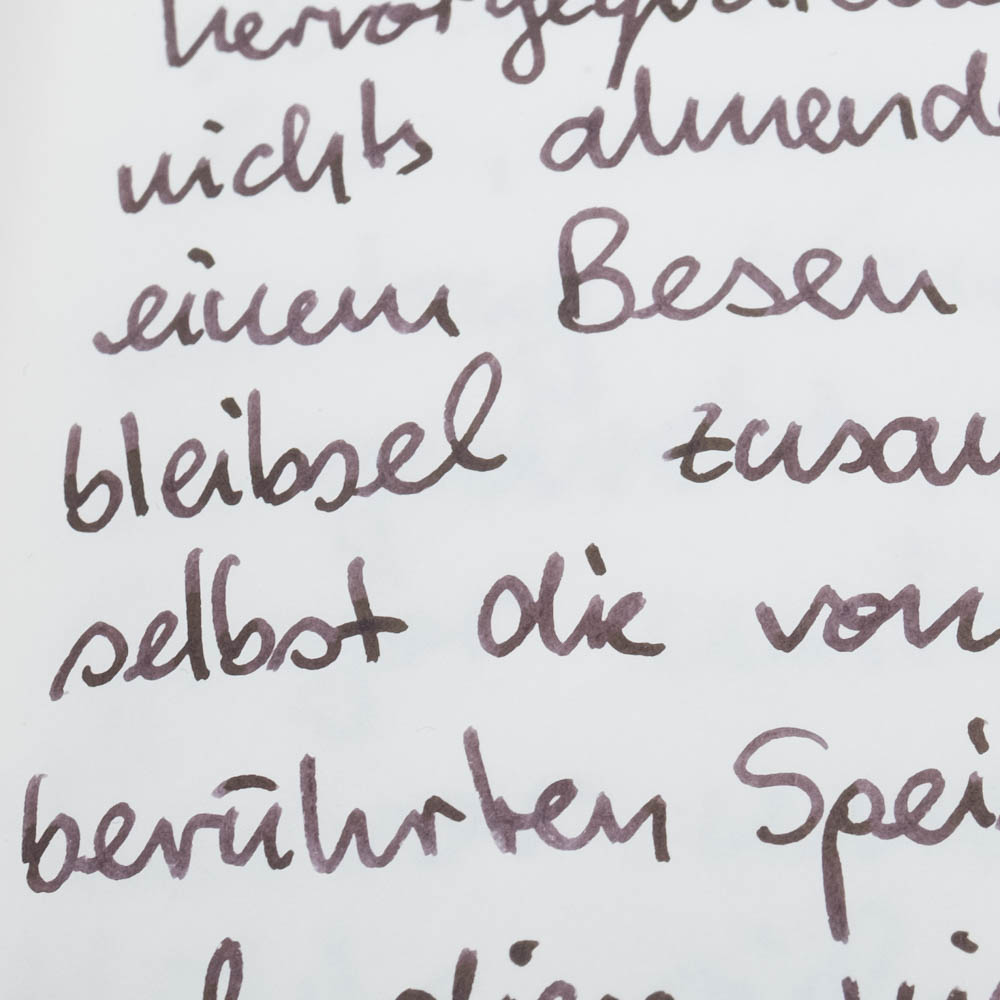 nichts ahnende
einem Besen
bleibsel zusam
selbst die von
berührten Spei